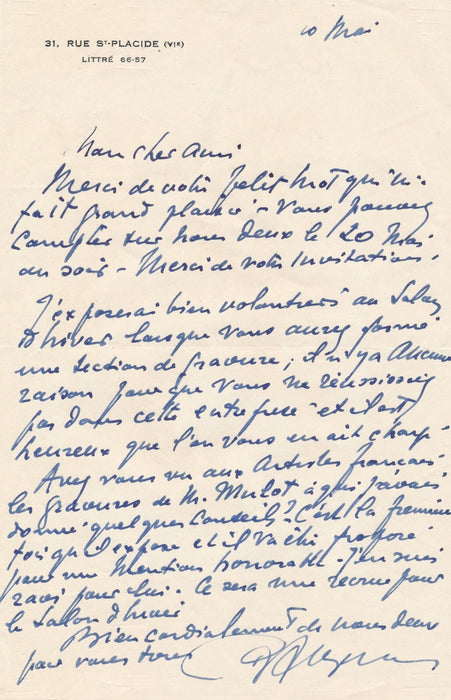 10 Mai
31, RUE ST-PLACIDE (VIE)
LITTRÉ 66-57
Mon cher Ami
Merci de votre petit mot qui m'a
fait grand plaisir - Vous pouvez
compter sur nous deux le 20 Mai
au soir - Merci de votre Invitation.
J'exposerai bien volontiers au Salon
d'hiver lorsque vous aurez formé
une section de gravure ; il n'y a Aucune
raison pour que vous ne réussissiez
pas dans cette entreprise et il est
heureux que l'on vous en ait chargé
Avez vous vu aux Artistes français
les gravures de M. Mulot, à qui j'avais
donné quelques conseils ? C'est la première
fois qu'il expose et il va être proposé
pour une Mention honorable. J'en suis
ravi pour lui. Ce sera une recrue pour
le Salon d'hiver
Bien cordialement de nous deux
pour vous tous